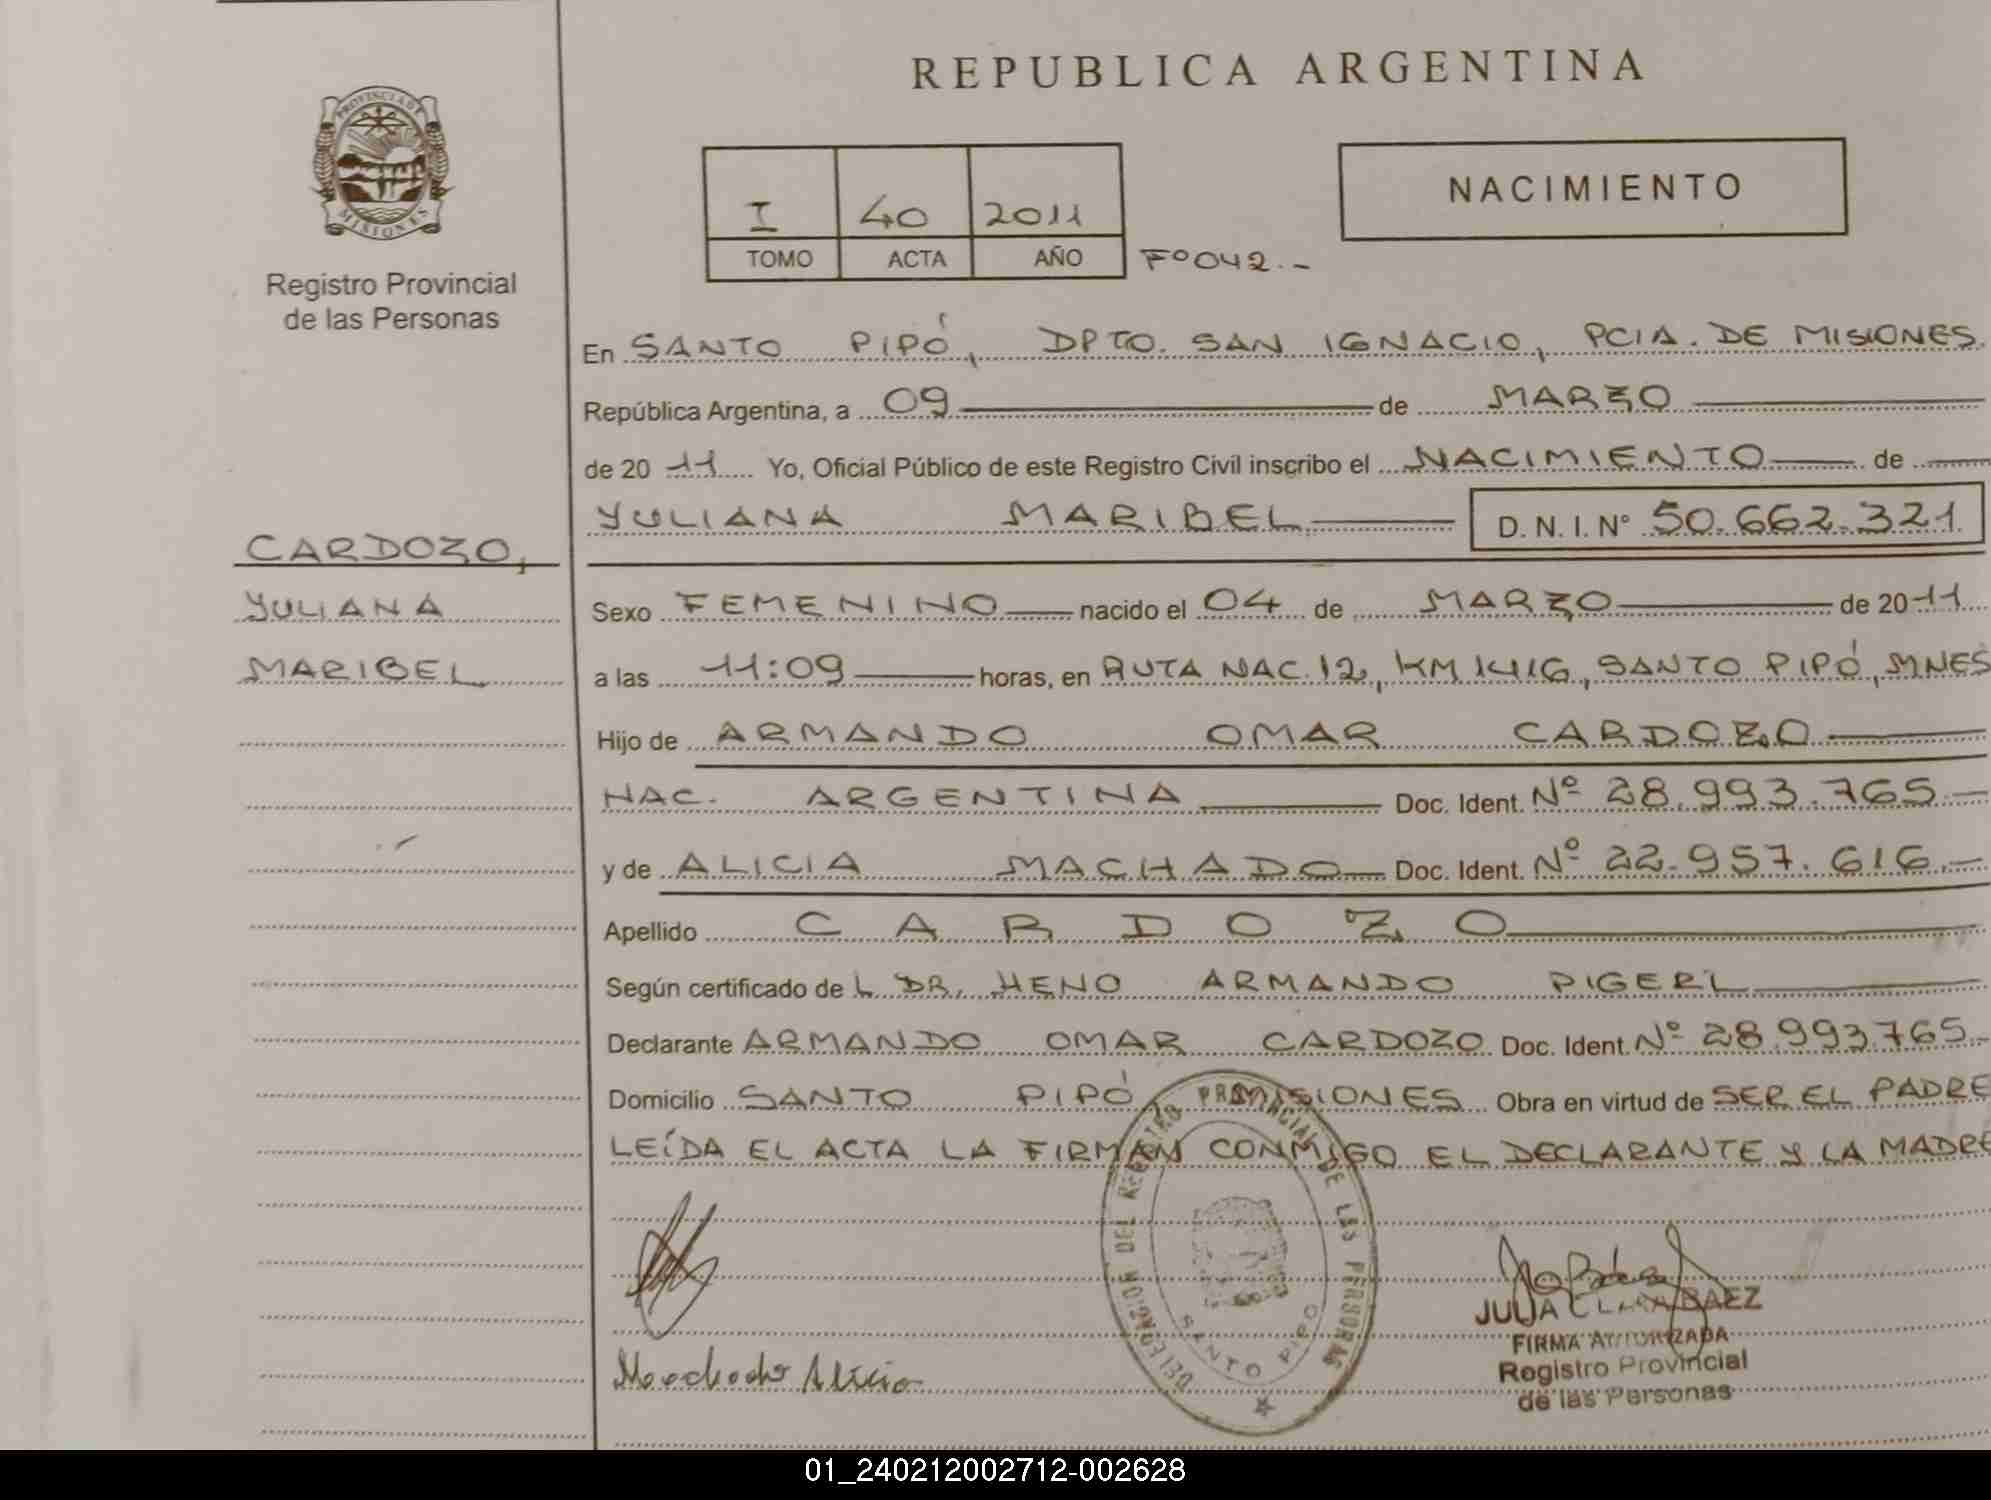 REPUBLICA ARGENTINA
PROVINCIA DE
MISIONES
Registro Provincial
de las Personas
NACIMIENTO
I 40 2011
TOMO ACTA AÑO Fº 042.-
En SANTO PIPÓ, DPTO. SAN IGNACIO, PCIA. DE MISIONES.
República Argentina, a 09 de MARZO
de 20 11 Yo, Oficial Público de este Registro Civil inscribo el NACIMIENTO de
YULIANA MARIBEL D. N. I. N° 50.662.321
CARDOZO,
YULIANA
MARIBEL
Sexo FEMENINO nacido el 04 de MARZO de 20 11
a las 11:09 horas, en RUTA NAC. 12, KM 1416, SANTO PIPÓ, MNES
Hijo de ARMANDO OMAR CARDOZO
NAC. ARGENTINA Doc. Ident. Nº 28.993.765
y de ALICIA MACHADO Doc. Ident. Nº 22.957.616
Apellido CARDOZO
Según certificado de L DR. HENO ARMANDO PIGERL
Declarante ARMANDO OMAR CARDOZO Doc. Ident. Nº 28.993.765
Domicilio SANTO PIPÓ MISIONES Obra en virtud de SER EL PADRE
LEÍDA EL ACTA LA FIRMAN CONMIGO EL DECLARANTE Y LA MADRE
DELEGACION DEL REGISTRO PROVINCIAL DE LAS PERSONAS
SANTO PIPO
Machado Alicia
JULIA CLARA BAEZ
FIRMA AUTORIZADA
Registro Provincial
de las Personas
01_240212002712-002628